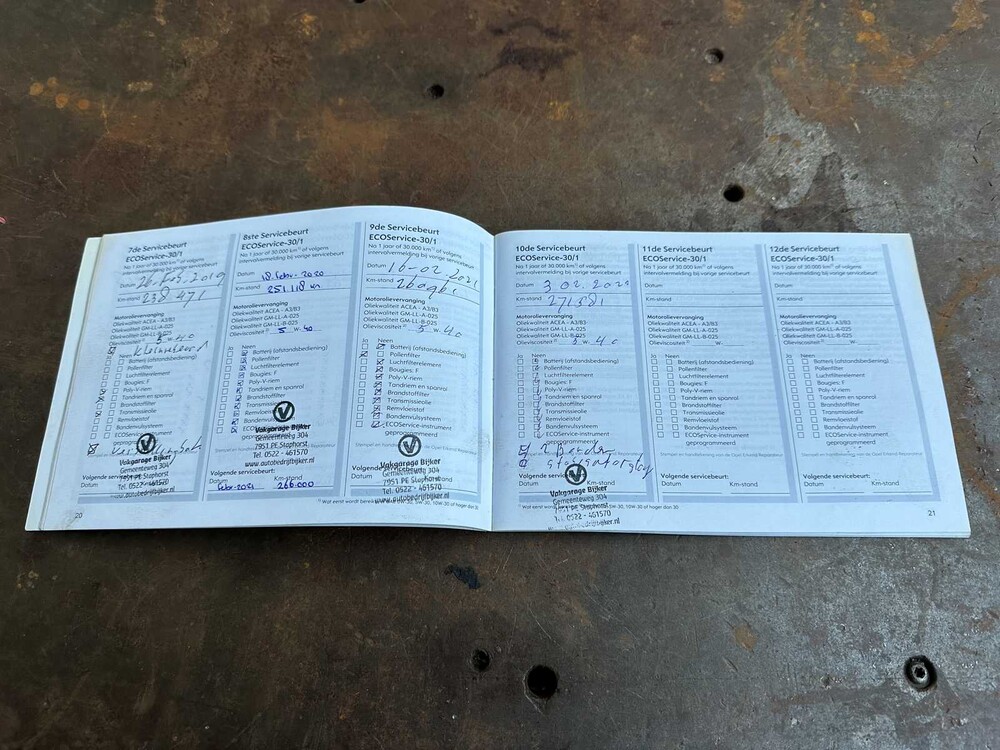 7de Servicebeurt
ECOService-30/1
Na 1 jaar of 30.000 km of volgens
intervalvermelding bij vorige servicebeurt
Datum 2019
Km-stand 238 471
Motorolievervanging
Oliekwaliteit ACEA - A3/B3
Oliekwaliteit GM-LL-A-025
Oliekwaliteit GM-LL-B-025
Ja Neen
Batterij (afstandsbediening)
Pollenfilter
Luchtfilterelement
Bougies: F
Poly-V-riem
Tandriem en spanrol
Brandstoffilter
Transmissieolie
Remvloeistof
Bandenvulsysteem
ECOService-instrument
geprogrammeerd
Vakgarage Bijker
Gemeenteweg 304
7951 PE Staphorst
Tel. 0522 - 461570
www.autobedrijfbijker.nl
Volgende servicebeurt:
Datum
20
8ste Servicebeurt
ECOService-30/1
Na 1 jaar of 30.000 km of volgens
intervalvermelding bij vorige servicebeurt
Datum 18 febr. 2020
Km-stand 251.118 km
Motorolievervanging
Oliekwaliteit ACEA - A3/B3
Oliekwaliteit GM-LL-A-025
Oliekwaliteit GM-LL-B-025
Olieviscositeit 5 w 40
Ja Neen
Batterij (afstandsbediening)
Pollenfilter
Luchtfilterelement
Bougies: F
Poly-V-riem
Tandriem en spanrol
Brandstoffilter
Transmissieolie
Remvloeistof
Bandenvulsysteem
Vakgarage Bijker
Gemeenteweg 304
7951 PE Staphorst
Tel. 0522 - 461570
www.autobedrijfbijker.nl
Volgende servicebeurt:
Datum Km-stand
febr. 2021 266.000
9de Servicebeurt
ECOService-30/1
Na 1 jaar of 30.000 km of volgens
intervalvermelding bij vorige servicebeurt
Datum 16-02-2021
Km-stand
Motorolievervanging
Oliekwaliteit ACEA - A3/B3
Oliekwaliteit GM-LL-A-025
Oliekwaliteit GM-LL-B-025
Olieviscositeit 5 w 40
Ja Neen
Batterij (afstandsbediening)
Pollenfilter
Luchtfilterelement
Bougies: F
Poly-V-riem
Tandriem en spanrol
Brandstoffilter
Transmissieolie
Remvloeistof
Bandenvulsysteem
ECOService-instrument
geprogrammeerd
Vakgarage Bijker
Gemeenteweg 304
7951 PE Staphorst
Tel. 0522 - 461570
www.autobedrijfbijker.nl
Volgende servicebeurt:
Datum Km-stand
10de Servicebeurt
ECOService-30/1
Na 1 jaar of 30.000 km of volgens
intervalvermelding bij vorige servicebeurt
Datum 3 02.
Km-stand 271581
Motorolievervanging
Oliekwaliteit ACEA - A3/B3
Oliekwaliteit GM-LL-A-025
Oliekwaliteit GM-LL-B-025
Olieviscositeit 5 w. 40
Ja Neen
Batterij (afstandsbediening)
Pollenfilter
Luchtfilterelement
Bougies: F
Poly-V-riem
Tandriem en spanrol
Brandstoffilter
Transmissieolie
Remvloeistof
Bandenvulsysteem
ECOService-instrument
geprogrammeerd
Vakgarage Bijker
Gemeenteweg 304
7951 PE Staphorst
Tel. 0522 - 461570
autobedrijfbijker.nl
Volgende servicebeurt:
Datum Km-stand
11de Servicebeurt
ECOService-30/1
Na 1 jaar of 30.000 km of volgens
intervalvermelding bij vorige servicebeurt
Datum
Km-stand
Motorolievervanging
Oliekwaliteit ACEA - A3/B3
Oliekwaliteit GM-LL-A-025
Oliekwaliteit GM-LL-B-025
Olieviscositeit W
Ja Neen
Batterij (afstandsbediening)
Pollenfilter
Luchtfilterelement
Bougies: F
Poly-V-riem
Tandriem en spanrol
Brandstoffilter
Transmissieolie
Remvloeistof
Bandenvulsysteem
ECOService-instrument
geprogrammeerd
Volgende servicebeurt:
Datum Km-stand
12de Servicebeurt
ECOService-30/1
Na 1 jaar of 30.000 km of volgens
intervalvermelding bij vorige servicebeurt
Datum
Km-stand
Motorolievervanging
Oliekwaliteit ACEA - A3/B3
Oliekwaliteit GM-LL-A-025
Oliekwaliteit GM-LL-B-025
Olieviscositeit W
Ja Neen
Batterij (afstandsbediening)
Pollenfilter
Luchtfilterelement
Bougies: F
Poly-V-riem
Tandriem en spanrol
Brandstoffilter
Transmissieolie
Remvloeistof
Bandenvulsysteem
ECOService-instrument
geprogrammeerd
Volgende servicebeurt:
Datum Km-stand
21